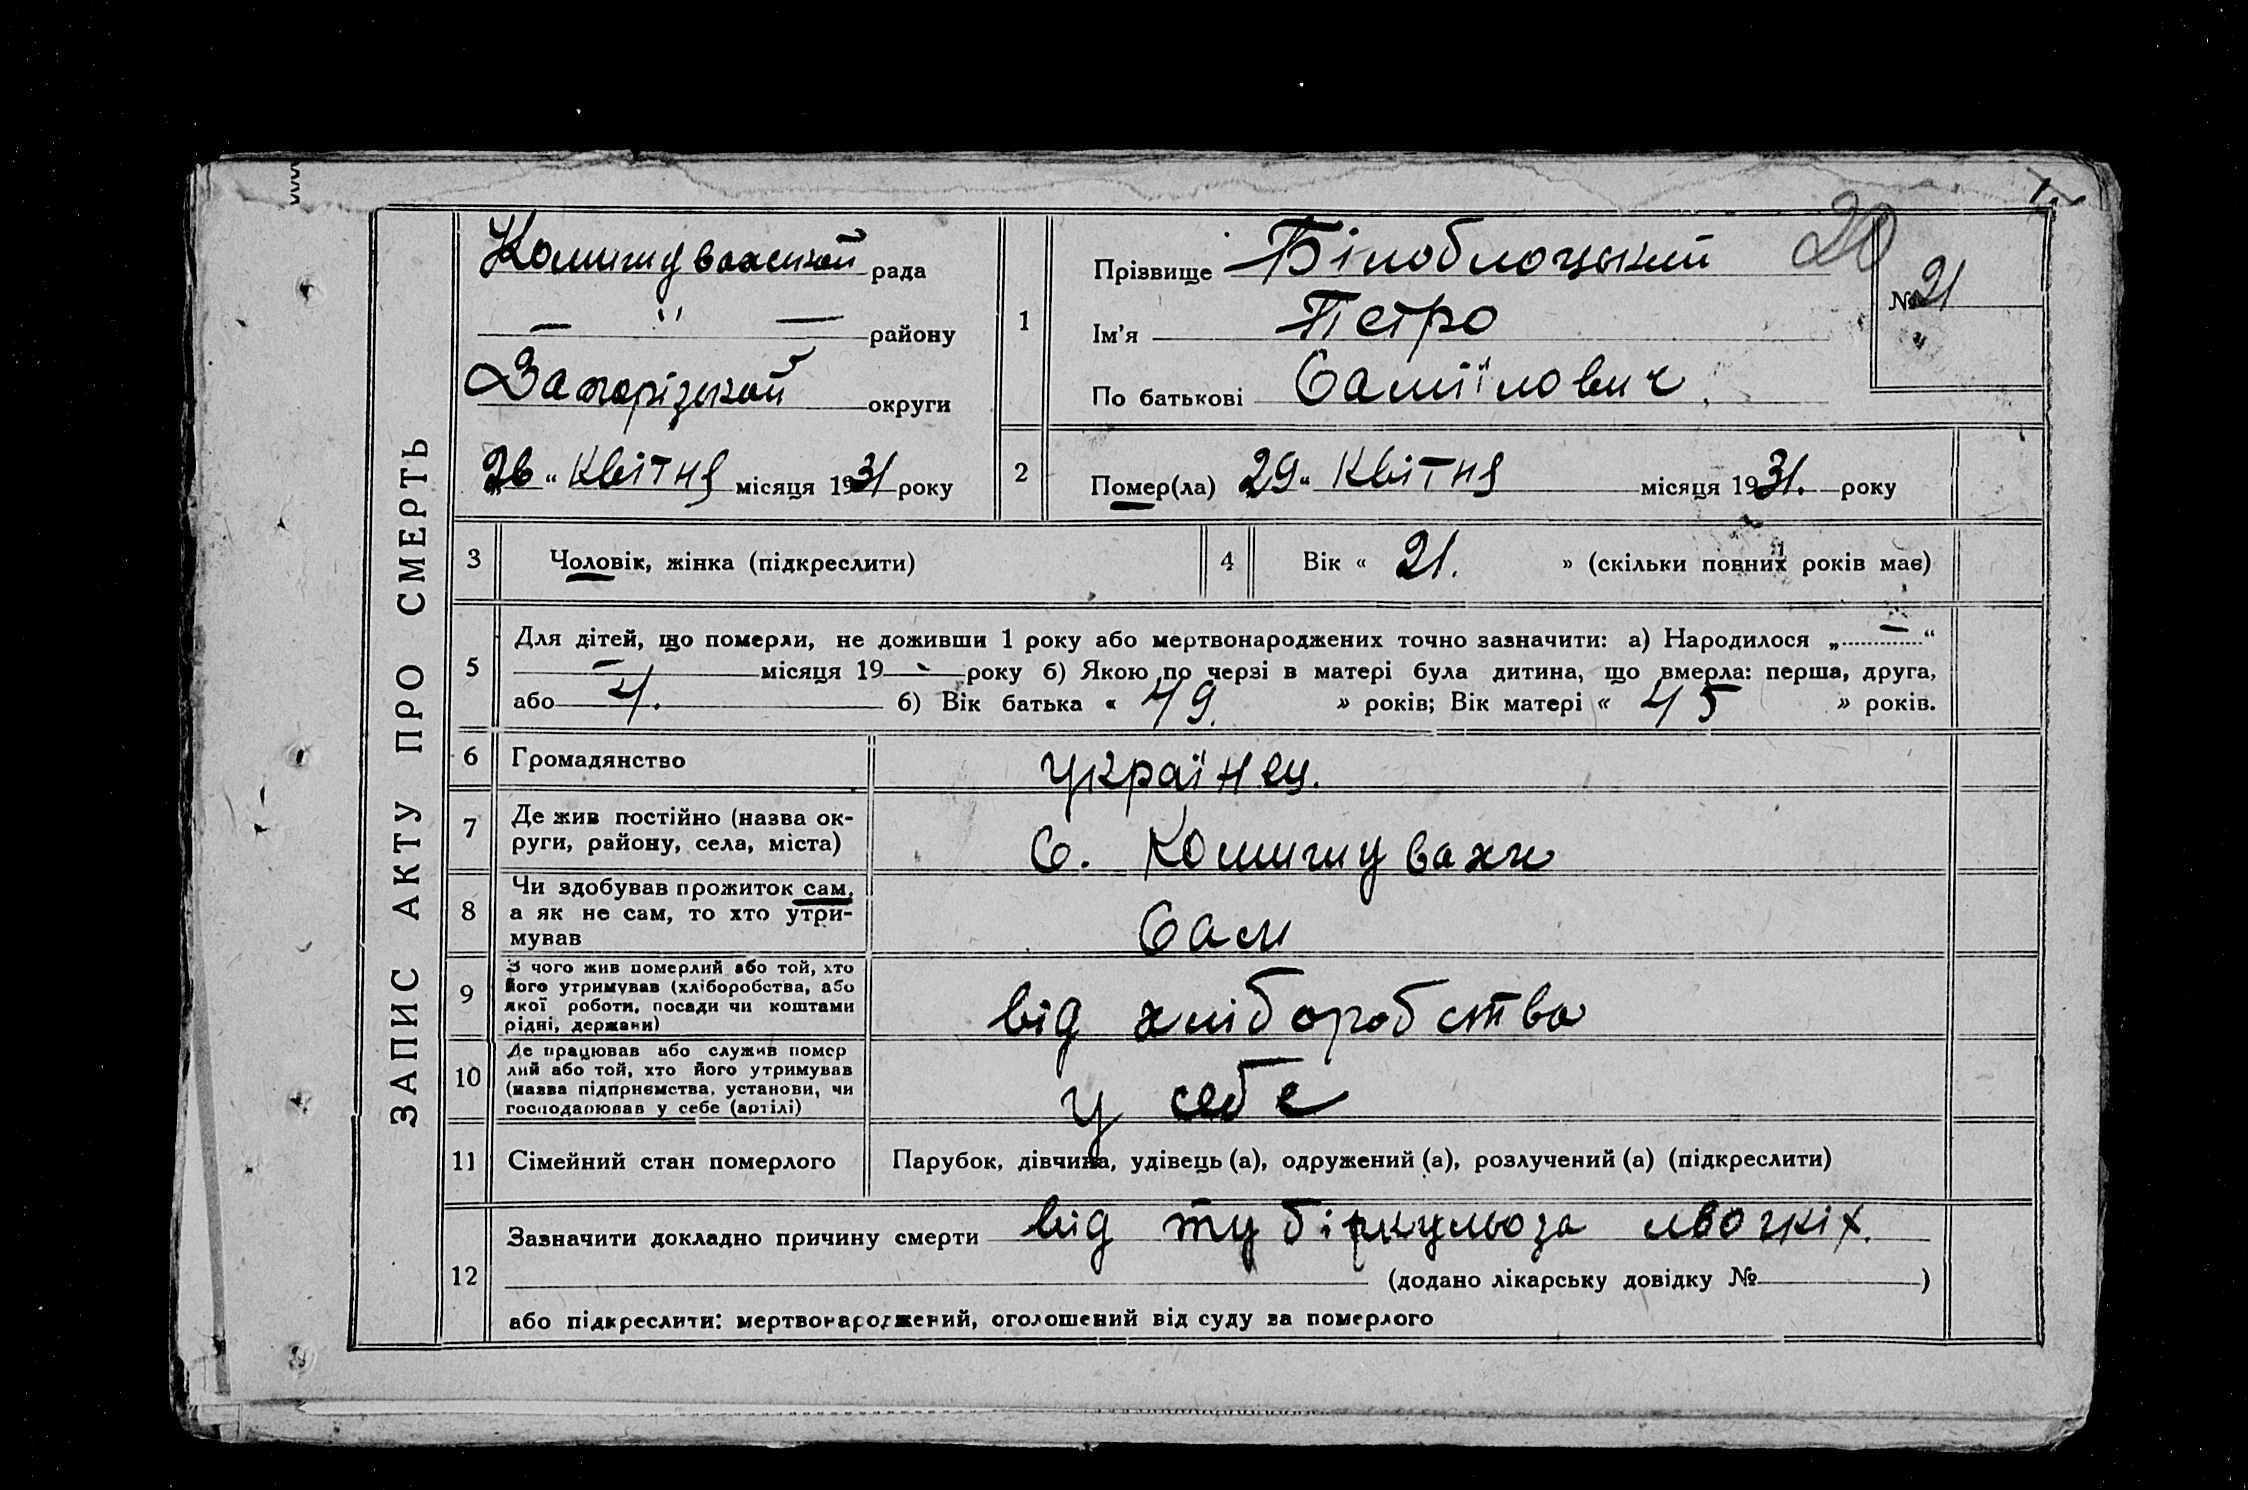 ЗАПИС АКТУ ПРО СМЕРТЬ
Комишуваської рада
— " — району
Запорізької округи
26 " Квітня місяця 1931 року
20
№ 21
1
Прізвище Білоблоцький
Ім'я Петро
По батькові Саміїлович
2
Помер(ла) 29 " Квітня місяця 1931. року
3 Чоловік, жінка (підкреслити)
4 Вік « 21. » (скільки повних років має)
5
Для дітей, що померли, не доживши 1 року або мертвонароджених точно зазначити: а) Народилося „ — “
— місяця 19 - року б) Якою по черзі в матері була дитина, що вмерла: перша, друга,
або 4. б) Вік батька « 49. » років; Вік матері « 45 » років.
6 Громадянство українец.
7 Де жив постійно (назва ок-
руги, району, села, міста)
С. Комишуваха
8 Чи здобував прожиток сам,
а як не сам, то хто утри-
мував
Сам
9 З чого жив померлий або той, хто
його утримував (хліборобства, або
якої роботи, посади чи коштами
рідні, держави)
від хліборобства
10 Де працював або служив помер
лий або той, хто його утримував
(назва підприємства, установи, чи
господарював у себе (артілі)
у себе
11 Сімейний стан померлого Парубок, дівчина, удівець (а), одружений (а), розлучений (а) (підкреслити)
12
Зазначити докладно причину смерти від тубіркульоза льогкіх.
(додано лікарську довідку № )
або підкреслити: мертвонароджений, оголошений від суду за померлого